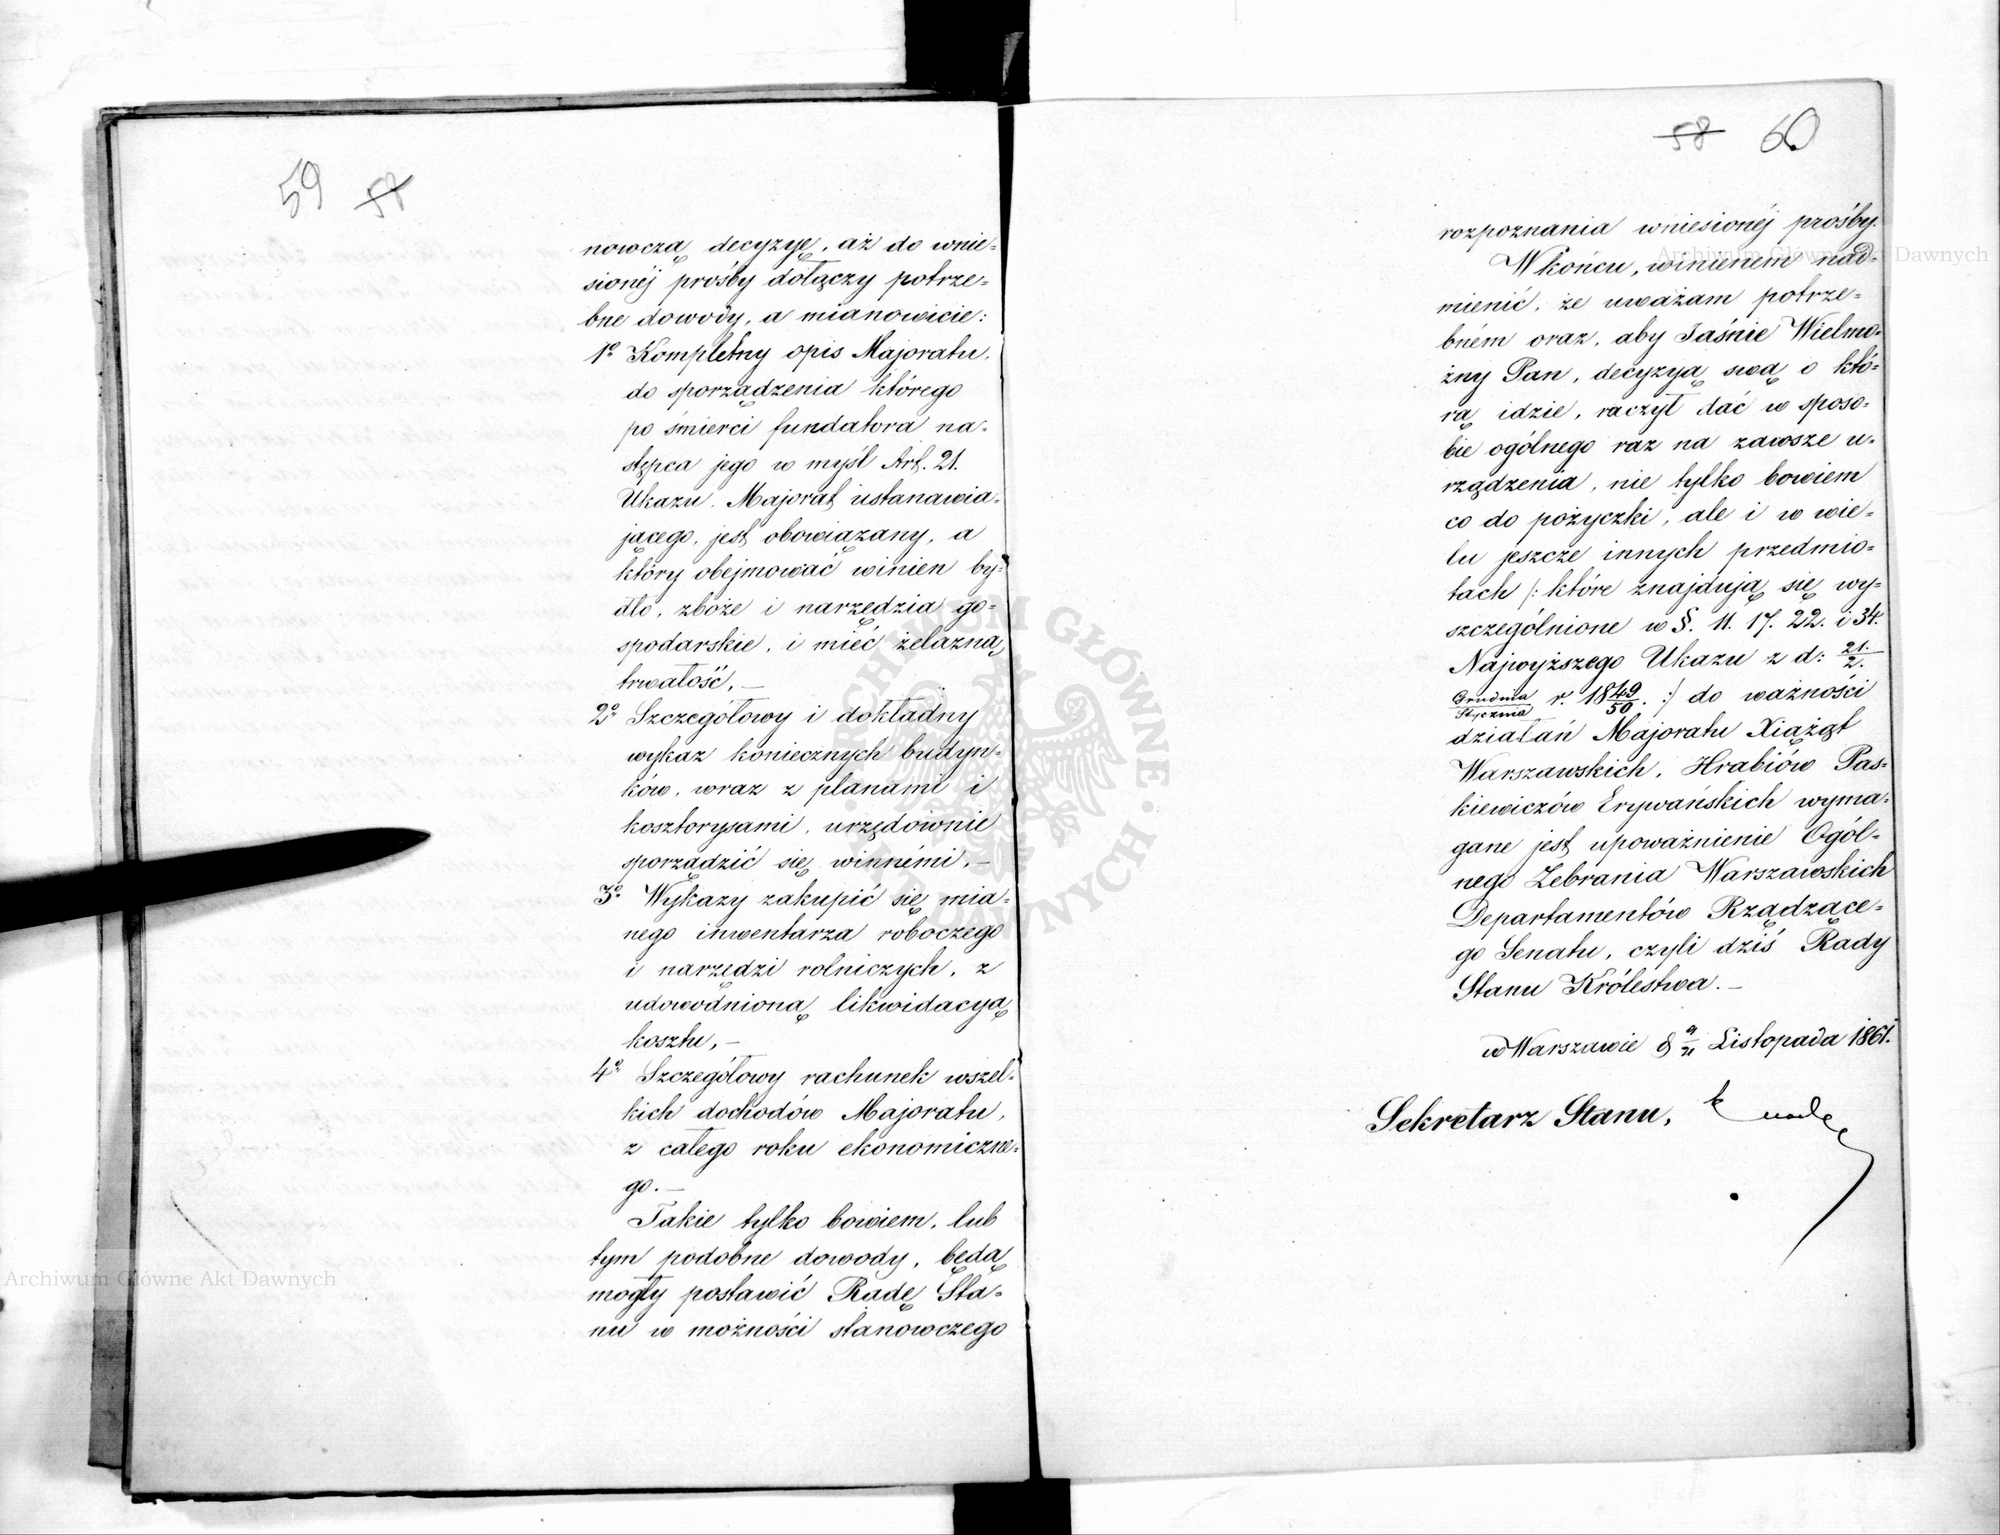 59 57
nowczą decyzyę, aż do wnie=
sionéj prośby dołączy potrze=
bne dowody, a mianowicie:
1o Kompletny opis Majoratu,
do sporządzenia którego
po śmierci fundatora na=
stępca jego w myśl Art. 21.
Ukazu, Majorat ustanawia=
jącego, jest obowiązany, a
który obejmować winien by=
dło, zboże i narzędzia go=
spodarskie, i mieć żelazną
trwałość, —
2o Szczegółowy i dokładny
wykaz koniecznych budyn=
ków, wraz z planami i
kosztorysami, urzędownie
sporządzić się winnémi, —
3o Wykazy zakupić się mia=
nego inwentarza roboczego
i narzędzi rolniczych, z
udowodnioną likwidacyą
kosztu, —
4o Szczegółowy rachunek wszel=
kich dochodów Majoratu,
z całego roku ekonomiczne=
go. —
Takie tylko bowiem, lub
tym podobne dowody, będą
mogły postawić Radę Sta=
nu w możności stanowczego
58 60
rozpoznania wniesionéj prośby.
W końcu, winienem nad=
mienić, że uważam potrze=
bném oraz, aby Jaśnie Wielmo=
żny Pan, decyzyą swą o któ=
rą idzie, raczył dać w sposo=
bie ogólnego raz na zawsze u=
rządzenia, nie tylko bowiem
co do pożyczki, ale i w wie=
lu jeszcze innych przedmio=
tach /: które znajdują się wy=
szczególnione w §. 11. 17. 22. i 34.
Najwyższego Ukazu z d: 21./2.
Grudnia/Stycznia r. 1849/50. :/ do ważności
działań Majoratu Xiążąt
Warszawskich, Hrabiów Pas=
kiewiczów Erywańskich wyma=
gane jest upoważnienie Ogól=
nego Zebrania Warszawskich
Departamentów Rządzące=
go Senatu, czyli dziś Rady
Stanu Królestwa. —
w Warszawie d 9/21 Listopada 1861.
Sekretarz Stanu,
Archiwum Główne Akt Dawnych
Archiwum Główne Akt Dawnych
ARCHIWUM GŁÓWNE AKT DAWNYCH